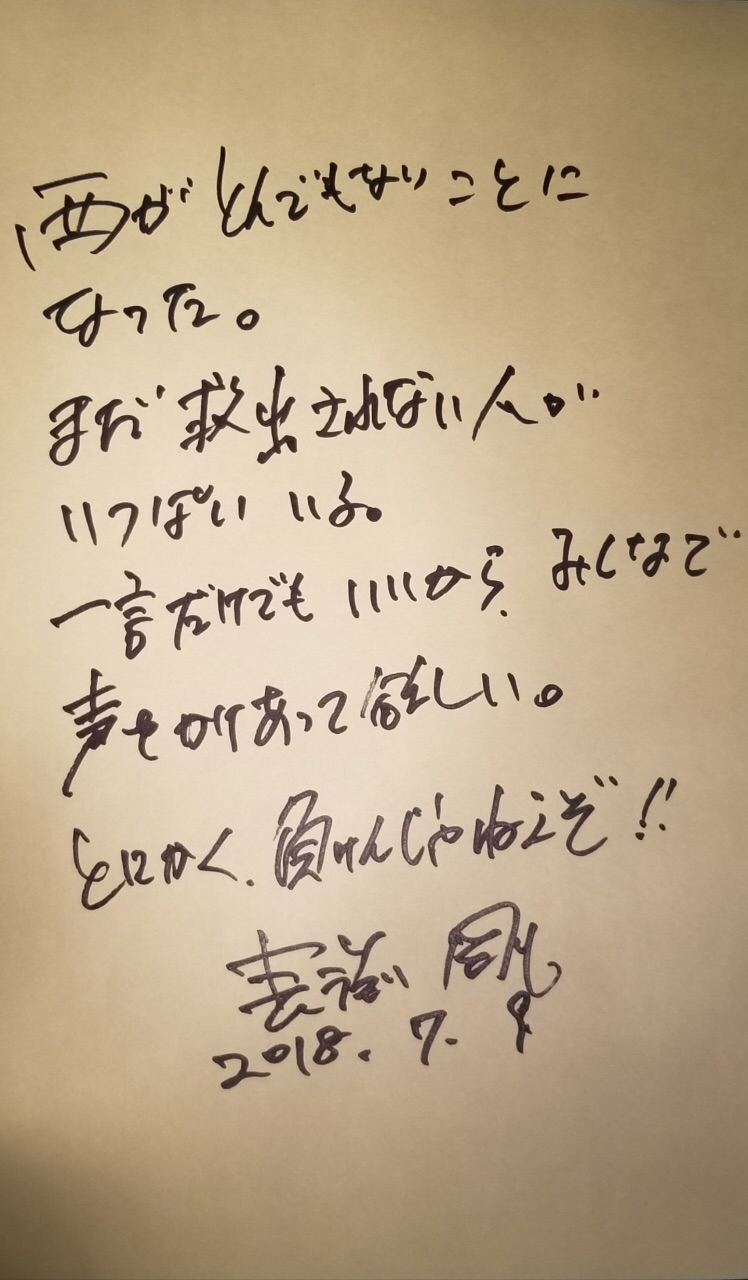 西がとんでもないことに
なった。
まだ救出されない人が
いっぱいいる。
一言だけでもいいから、みんなで
声をかけあって欲しい。
とにかく、負けんじゃねえぞ!!
長渕 剛
2018.7.9